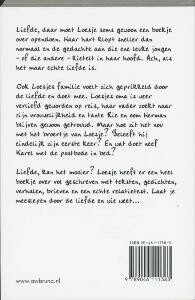 Liefde, daar moet Loesje soms gewoon een boekje
over opendoen. Haar hart klopt sneller dan
normaal en de gedachte aan die ene leuke jongen
- of die andere - kietelt in haar hoofd. Ach, als
het maar echte liefde is.
Ook Loesjes familie voelt zich geprikkeld door
de liefde en doet mee. Loesjes oma is weer
verliefd geworden op reis, haar vader zoekt naar
zijn vrouwelijkheid en tante Rie en oom Herman
blijven gewoon getrouwd. Maar hoe zit het nou
met het broertje van Loesje? Beleeft hij
eindelijk zijn eerste keer? En wat doet neef
Karel met de postbode in bed?
Liefde, kan het mooier? Loesje heeft er een heel
boekje over vol geschreven met teksten, gedichten,
verhalen, brieven en een echte liefdestest. Laat je
meeslepen door de liefde en wie weet...
www.awbruna.nl